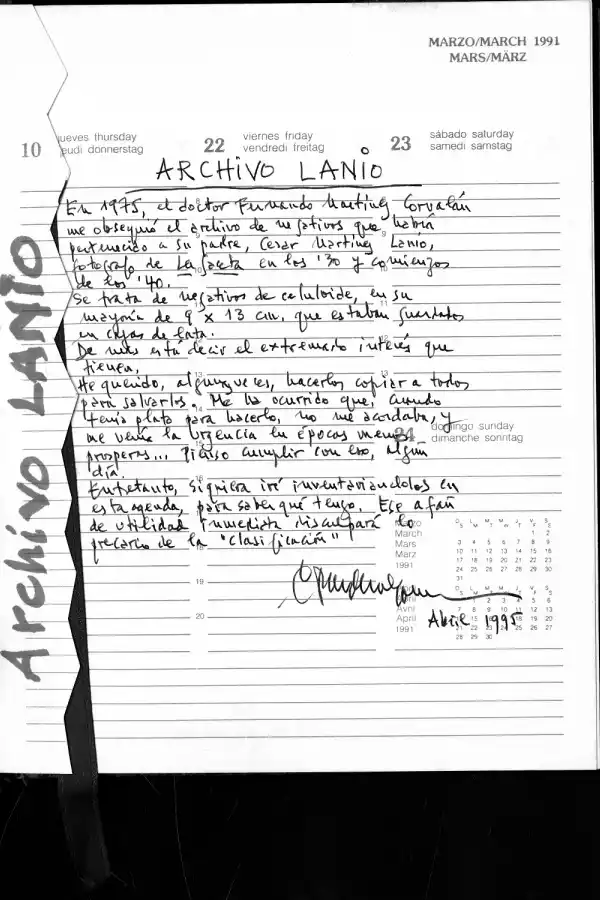 MARZO/MARCH 1991
MARS/MÄRZ
10
jueves thursday
jeudi donnerstag
22
viernes friday
vendredi freitag
23
sábado saturday
samedi samstag
ARCHIVO LANIO
En 1975, el doctor Fernando Martínez Corvalán
me obsequió el archivo de negativos que había
pertenecido a su padre, Cesar Martínez Lanio,
fotógrafo de La Gaceta en los '30 y comienzos
de los '40.
Se trata de negativos de celuloide, en su
mayoría de 9 x 13 cm, que estaban guardados
en cajas de lata.
De más está decir el extremado interés que
tienen.
He querido, algunas veces, hacerlos copiar a todos
para salvarlos. Me ha ocurrido que, cuando
tenía plata para hacerlo, no me acordaba, y
me venía la urgencia en épocas menos
prosperas... Pienso cumplir con eso, algún
día.
Entretanto, siquiera iré inventariándolos en
esta agenda, para saber qué tengo. Ese afán
de utilidad inmediata disculpará lo
precario de la "clasificación"
24
domingo sunday
dimanche sonntag
March
Mars
Marz
1991
19
20
Avril
April
1991
Abril 1995
Archivo LANIO